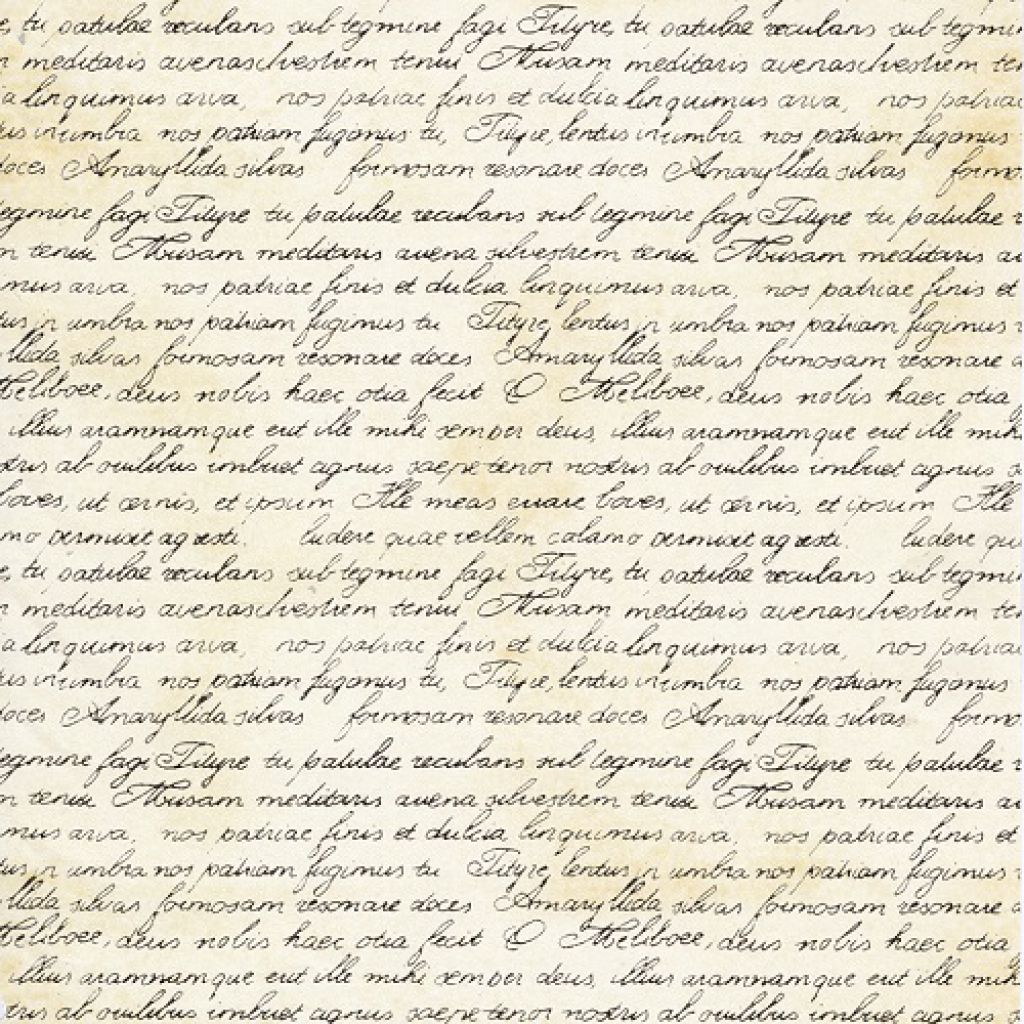 , tu patulae reculans sub tegmine fagi Tityre, tu patulae reculans sub tegmin
meditaris avenasilvestrem tenui Musam meditaris avenasilvestrem te
a linquimus arva, nos patriae finis et dulcia linquimus arva, nos patriae
us in umbra nos patriam fugamus tu, Tityre, lentus in umbra nos patriam fugamus
doces Amaryllida silvas formosam resonare doces Amaryllida silvas formo
egmine fagi Tityre tu patulae reculans sub tegmine fagi Tityre tu patulae r
n tenui Musam meditaris avena silvestrem tenui Musam meditaris av
mus arva, nos patriae finis et dulcia linquimus arva, nos patriae finis et
us in umbra nos patriam fugimus tu Tityre, lentus in umbra nos patriam fugimus
llida silvas formosam resonare doces Amaryllida silvas formosam resonare
Meliboee, deus nobis haec otia fecit O Meliboee, deus nobis haec otia
illius aramnamque erit ille mihi semper deus, illius aramnamque erit ille mih
stris ab ovilibus imbuet agnus saepe tenor nostris ab ovilibus imbuet agnus
boves, ut cernis, et ipsum Ille meas errare boves, ut cernis, et ipsum Ille
mo permisit agresti. ludere quae vellem calamo permisit agresti. ludere qu
, tu patulae reculans sub tegmine fagi Tityre, tu patulae reculans sub tegmin
meditaris avenasilvestrem tenui Musam meditaris avenasilvestrem te
a linquimus arva, nos patriae finis et dulcia linquimus arva, nos patriae
us in umbra nos patriam fugamus tu, Tityre, lentus in umbra nos patriam fugamus
doces Amaryllida silvas formosam resonare doces Amaryllida silvas formo
egmine fagi Tityre tu patulae reculans sub tegmine fagi Tityre tu patulae r
n tenui Musam meditaris avena silvestrem tenui Musam meditaris av
mus arva, nos patriae finis et dulcia linquimus arva, nos patriae finis et
us in umbra nos patriam fugimus tu Tityre, lentus in umbra nos patriam fugimus
llida silvas formosam resonare doces Amaryllida silvas formosam resonare
Meliboee, deus nobis haec otia fecit O Meliboee, deus nobis haec otia
illius aramnamque erit ille mihi semper deus, illius aramnamque erit ille mih
stris ab ovilibus imbuet agnus saepe tenor nostris ab ovilibus imbuet agnus